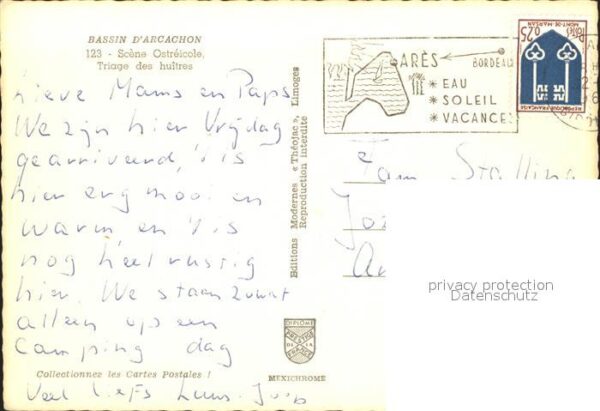 BASSIN D'ARCACHON
123 - Scène Ostréicole,
Triage des huîtres
lieve Mams en Paps
We zijn hier Vrijdag
gearriveerd, 't is
hier erg mooi en
warm en 't is
nog heel rustig
hier. We staan zowat
alleen op een
Camping dag
Collectionnez les Cartes Postales !
Veel liefs
Editions Modernes « Théojac », Limoges
Reproduction interdite
DIPLOME
PRESTIGE
DE LA
FRANCE
MEXICHROME
ARÈS
BORDEAUX
* EAU
* SOLEIL
* VACANCES
0,25
Postes
MONT-DE-MARSAN
REPUBLIQUE FRANÇAISE
Fam
privacy protection
Datenschutz